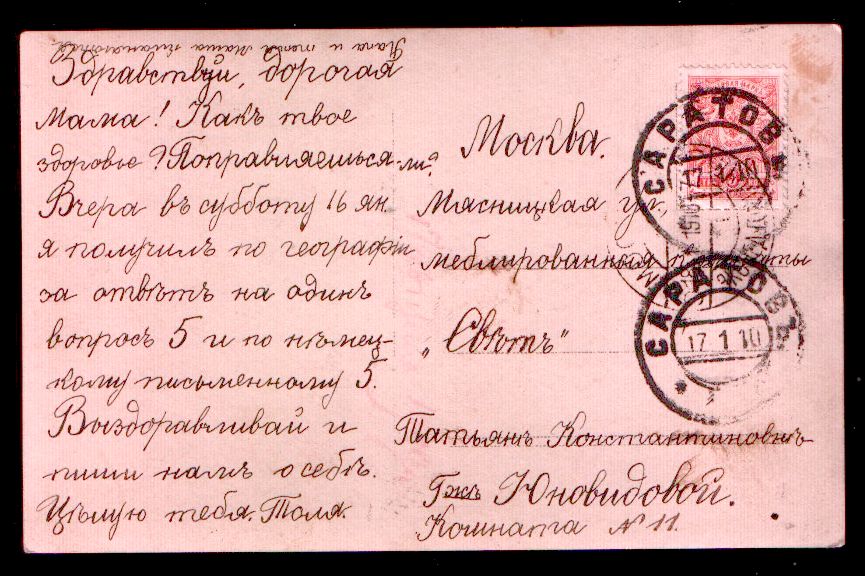 Папа и тетя Маша кланяются.
Здравствуй, дорогая
Мама! Какъ твое
здоровье? Поправляешься-ли?
Вчера въ субботу 16 ян
я получилъ по географіи
за отвѣтъ на одинъ
вопросъ 5 и по нѣмец-
кому письменному 5.
Выздоравливай и
пиши намъ о себѣ.
Цѣлую тебя. Толя.
Москва.
Мясницкая ул.
меблированныя
„Свѣтъ"
Татьянѣ Константиновнѣ
Гжѣ Юновидовой.
Комната № 11.
САРАТОВЪ
17 1 10
САРАТОВЪ
17 1 10